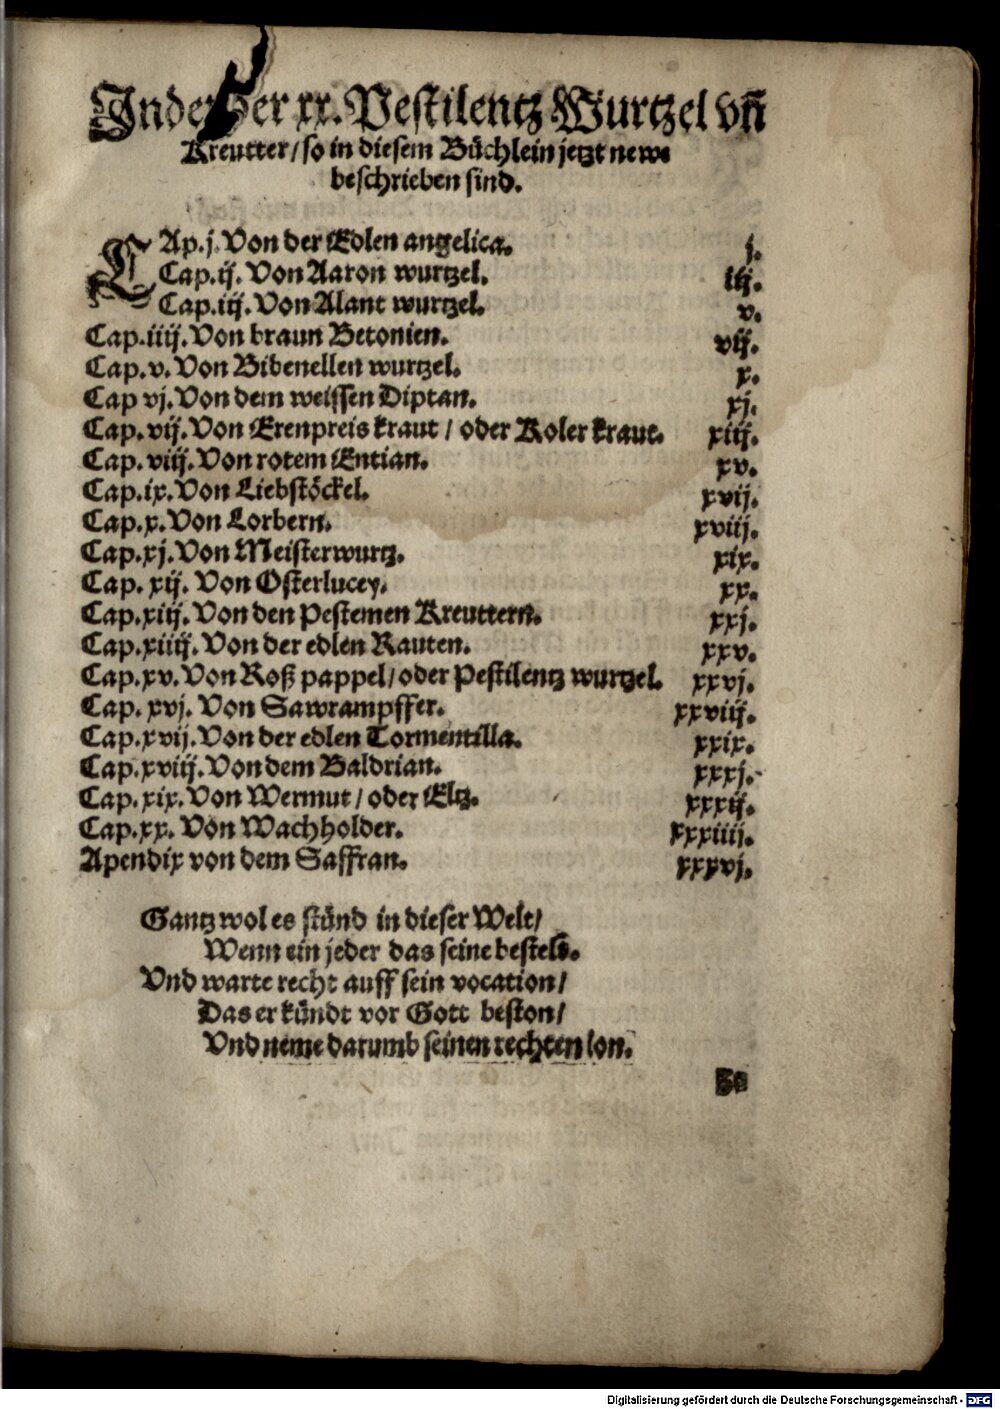 Index der xx. Pestilentz Wurtzel vñ
Kreutter/ so in diesem Büchlein jetzt newe
beschrieben sind.
CAp.j. Von der Edlen angelica. j.
Cap.ij. Von Aaron wurtzel. iij.
Cap.iij. Von Alant wurtzel. v.
Cap.iiij. Von braun Betonien. vij.
Cap.v. Von Bibenellen wurtzel. x.
Cap vj. Von dem weissen Diptan. xj.
Cap.vij. Von Erenpreis kraut / oder Koler kraut. xiij.
Cap.viij. Von rotem Entian. xv.
Cap.ix. Von Liebstöckel. xvij.
Cap.x. Von Lorbern. xviij.
Cap.xj. Von Meisterwurtz. xix.
Cap. xij. Von Osterlucey. xx.
Cap.xiij. Von den Pestemen Kreuttern. xxj.
Cap.xiiij. Von der edlen Rauten. xxv.
Cap.xv. Von Roß pappel/ oder Pestilentz wurtzel. xxvj.
Cap. xvj. Von Sawrampffer. xxviij.
Cap.xvij. Von der edlen Tormentilla. xxix.
Cap.xviij. Von dem Baldrian. xxxj.
Cap.xix. Von Wermut / oder Eltz. xxxij.
Cap.xx. Von Wachholder. xxxiiij.
Apendix von dem Saffran. xxxvj.
Gantz wol es stünd in dieser Welt/
Wenn ein jeder das seine bestelt.
Vnd warte recht auff sein vocation/
Das er kündt vor Gott beston/
Vnd neme darumb seinen rechten lon.
Digitalisierung gefördert durch die Deutsche Forschungsgemeinschaft - DFG